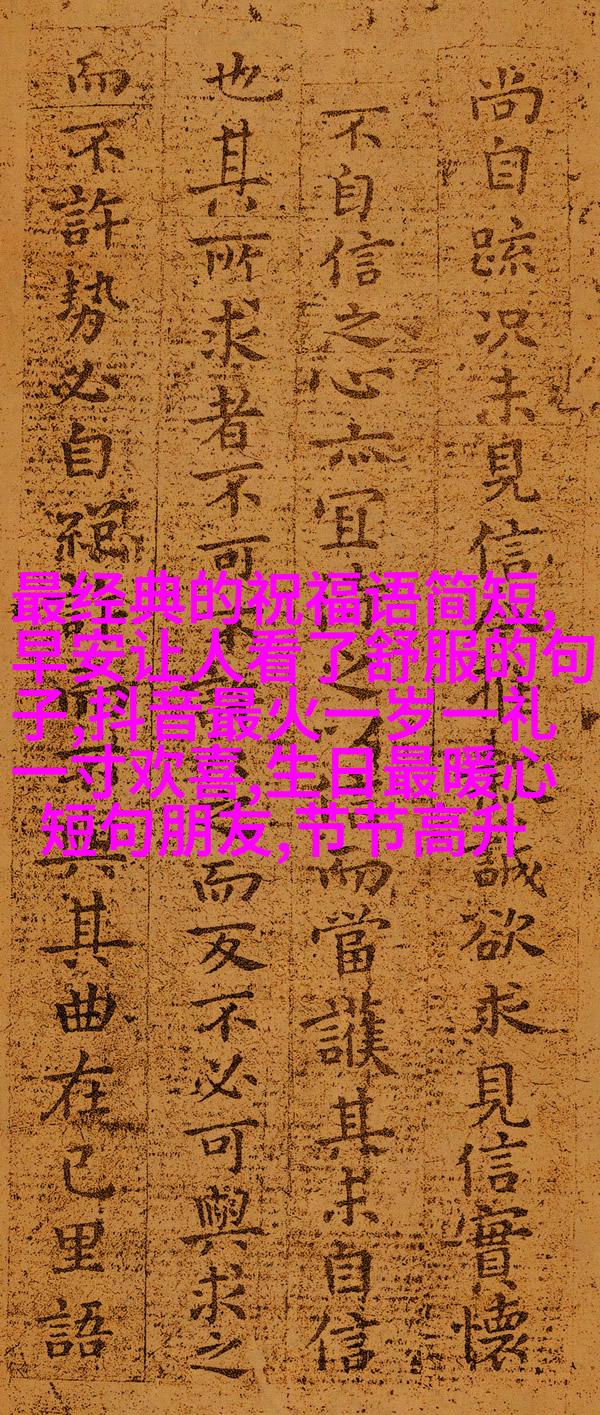 尚自疏况未見信誠欲求見信實懷
不自信之心亦宜而當護其未自信
也其所求者不可而反不必可與求之
而不許勢必自絕其曲在己里語
最经典的祝福语简短,
早安让人看了舒服的句
子,抖音最火一岁一礼
一寸欢喜,生日最暖心
短句朋友,节节高升